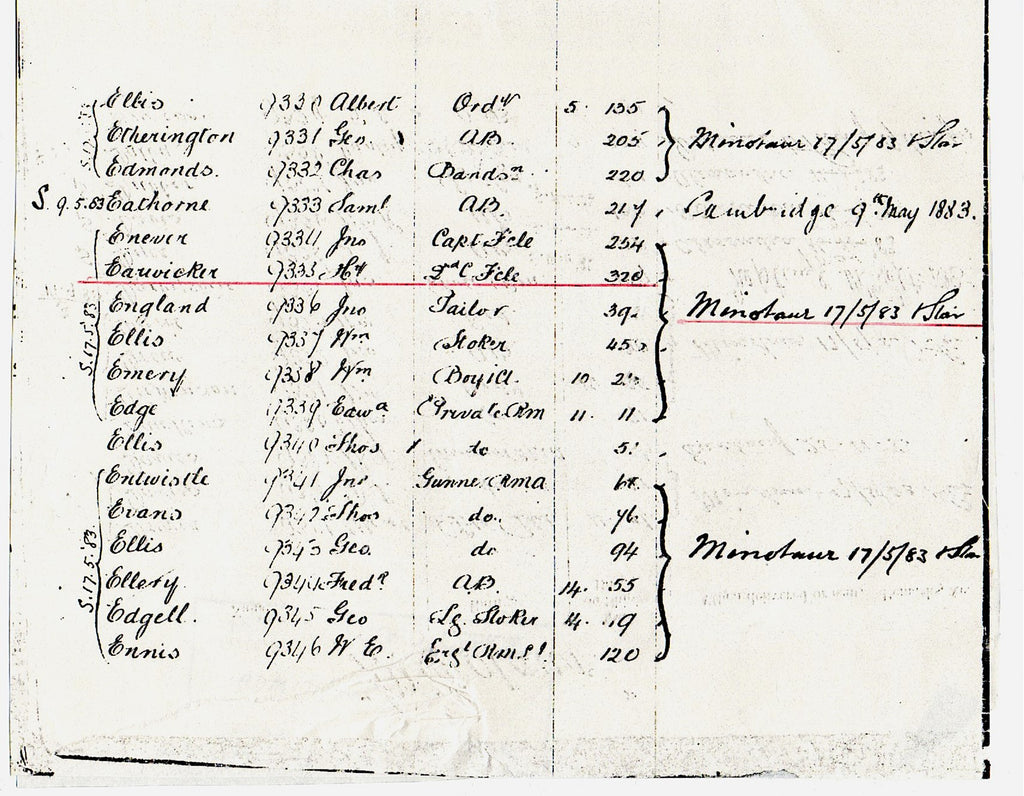 Ellis 9330 Albert Ordy 5. 135
Etherington 9331 Geo AB 205 Minotaur 17/5/83 & Star
Edmonds. 9332 Chas Bandsn 220
S. 9.5.83 Eathorne 9333 Saml AB. 217 Cambridge 9th May 1883.
Enever 9334 Jno Capt Fcle 254
Earwicker 9335 Hy 2d C Fcle 320
S.17.5.83 England 9336 Jno Tailor 39. Minotaur 17/5/83 & Star
Ellis 9337 Wm Stoker 45
Emery 9338 Wm Boy 1 Cl. 10
Edge 9339 Edwd Private RM 11. 11
Ellis 9340 Thos do
Entwistle 9341 Jno Gunner RMA
Evans 9342 Thos do. 76
S.17.5.83 Ellis 9343 Geo. do 94 Minotaur 17/5/83 & Star
Ellery 9344 Fredk AB. 14. 55
Edgell. 9345 Geo Lg. Stoker 14.
Ennis 9346 W E. 120